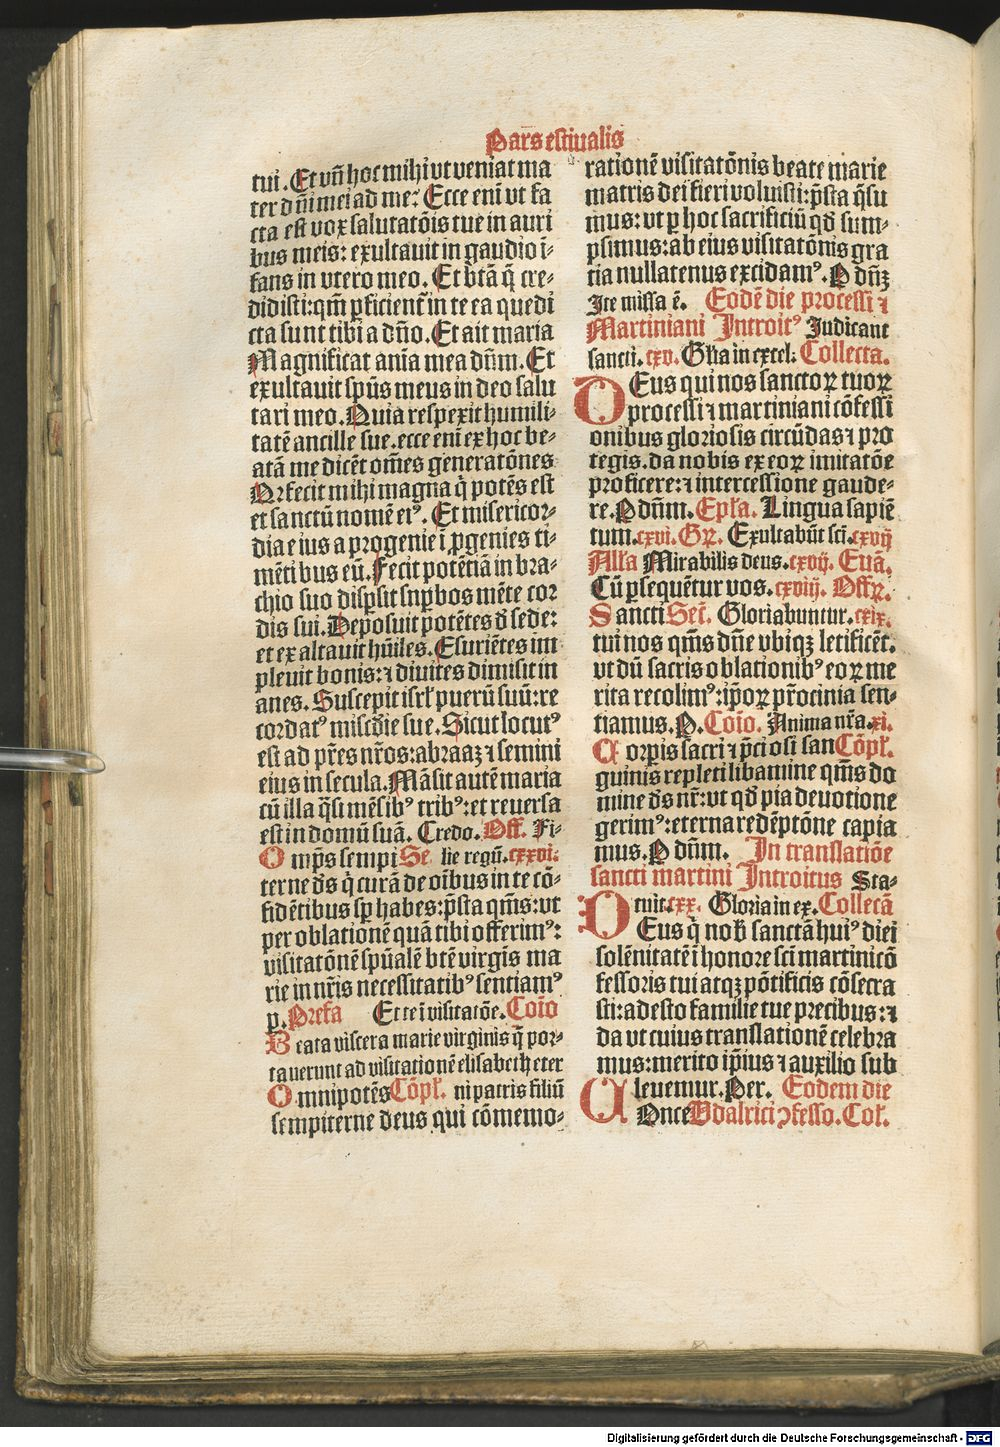 Pars estiualis
tui. Et vñ hoc mihi vt veniat ma
ter dñi mei ad me? Ecce eni vt fa
cta est vox salutatōis tue in auri
bus meis: exultauit in gaudio ī-
fans in vtero meo. Et btā q̄ cre-
didisti: qm̄ ꝑficient̄ in te ea que di
cta sunt tibi a dño. Et ait maria
Magnificat anīa mea dñm. Et
exultauit spūs meus in deo salu
tari meo. Quia respexit humili-
tatē ancille sue. ecce enī ex hoc be-
atā me dicēt om̄es generatōnes
Qr fecit mihi magna q̇ potēs est
et sanctū nomē eiꝰ. Et misericor-
dia eius a progenie ī ꝓgenies ti-
mētibus eū. Fecit potētiā in bra-
chio suo disꝑsit suꝑbos mēte cor
dis sui. Deposuit potētes d̄ sede:
et exaltauit hūiles. Esuriētes im
pleuit bonis: ⁊ diuites dimisit in
anes. Suscepit isrł puerū suū: re
cordatꝰ miscd̄ie sue. Sicut locutꝰ
est ad pr̄es nr̄os: abraaꝫ ⁊ semini
eius in secula. Māsit autē maria
cū illa q̄si mēsibꝰ tribꝰ: et reuersa
est in domū suā. Credo. Off. Fi-
Omp̄s sempi Se lie regū. cxxvi.
terne d̄s q̇ curā de oībus in te cō-
fidētibus sꝑ habes: p̄sta qm̄s: vt
per oblationē quā tibi offerimꝰ:
visitatōnē spūalē btē virgīs ma
rie in nr̄is necessitatibꝰ sentiamꝰ
p. Prefa Et te ī visitatōe. Coīo
Beata viscera marie virginis q̄ por-
tauerunt ad visitationē elisabeth eter
Omnipotēs Cōpł. ni patris filiū
sempiterne deus qui cōmemo-
rationē visitatōnis beate marie
matris dei fieri voluisti: p̄sta q̄su
mus: vt ꝑ hoc sacrificiū qd̄ sum-
psimus: ab eius visitatōnis gra
tia nullatenus excidamꝰ. P dñꝫ
Ite missa ē. Eodē die processi ⁊
Martiniani Introitꝰ Iudicant
sancti. cxv. Glīa in excel: Collecta.
DEus qui nos sanctoꝝ tuoꝝ
processi ⁊ martiniani cōfessi
onibus gloriosis circūdas ⁊ pro
tegis. da nobis ex eoꝝ imitatōe
proficere: ⁊ intercessione gaude-
re. P dñm. Epła. Lingua sapiē
tum. cxvi. Gꝝ. Exultabūt sci. cxvij
Alła Mirabilis deus. cxvij. Euā.
Cū ꝑsequētur vos. cxviij. Offꝝ.
Sancti Secī. Gloriabuntur. cxix.
tui nos qm̄s dn̄e vbiqꝫ letificēt.
vt dū sacris oblationibꝰ eoꝝ me
rita recolimꝰ: ip̄oꝝ pr̄ocinia sen-
tiamus. P. Coīo. Anima nr̄a. xi.
Corpis sacri ⁊ p̄ciosi san Cōpł.
guinis repleti libamine qm̄s do
mine d̄s nr̄: vt qd̄ pia deuotione
gerimꝰ: eterna redēptōne capia
mus. P dñm. In translatiōe
sancti martini Introitus Sta-
tuit. cxx. Gloria in ex. Collecā
DEus q̇ nob̄ sanctā huiꝰ diei
solēnitatē ī honore scī martini cō
fessoris tui atqꝫ pōtificis cōsecra
sti: adesto familie tue precibus: ⁊
da vt cuius translationē celebra
mus: merito ip̄ius ⁊ auxilio sub
leuemur. Per. Eodem die
Once Vdalrici ꝯfesso. Coł.
Digitalisierung gefördert durch die Deutsche Forschungsgemeinschaft - DFG